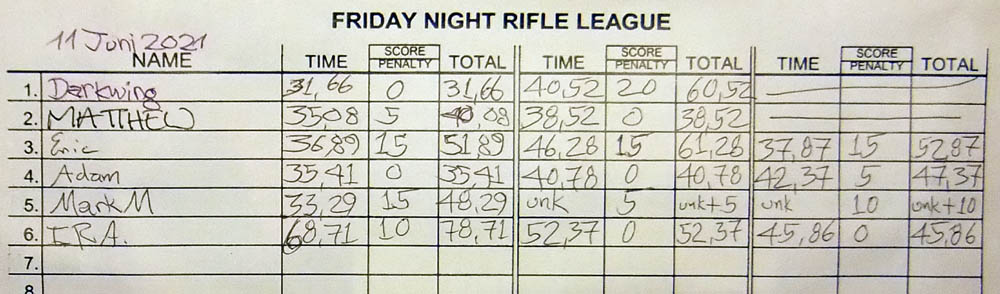 FRIDAY NIGHT RIFLE LEAGUE
11 Juni 2021
NAME TIME SCORE PENALTY TOTAL TIME SCORE PENALTY TOTAL TIME SCORE PENALTY TOTAL
1. Darkwing 31,66 0 31,66 40,52 20 60,52
2. MATTHEW 35,08 5 40,08 38,52 0 38,52
3. Eric 36,89 15 51,89 46,28 15 61,28 37,87 15 52,87
4. Adam 35,41 0 35,41 40,78 0 40,78 42,37 5 47,37
5. Mark M 33,29 15 48,29 unk 5 unk+5 unk 10 unk+10
6. IRA. 68,71 10 78,71 52,37 0 52,37 45,86 0 45,86
7.
8.